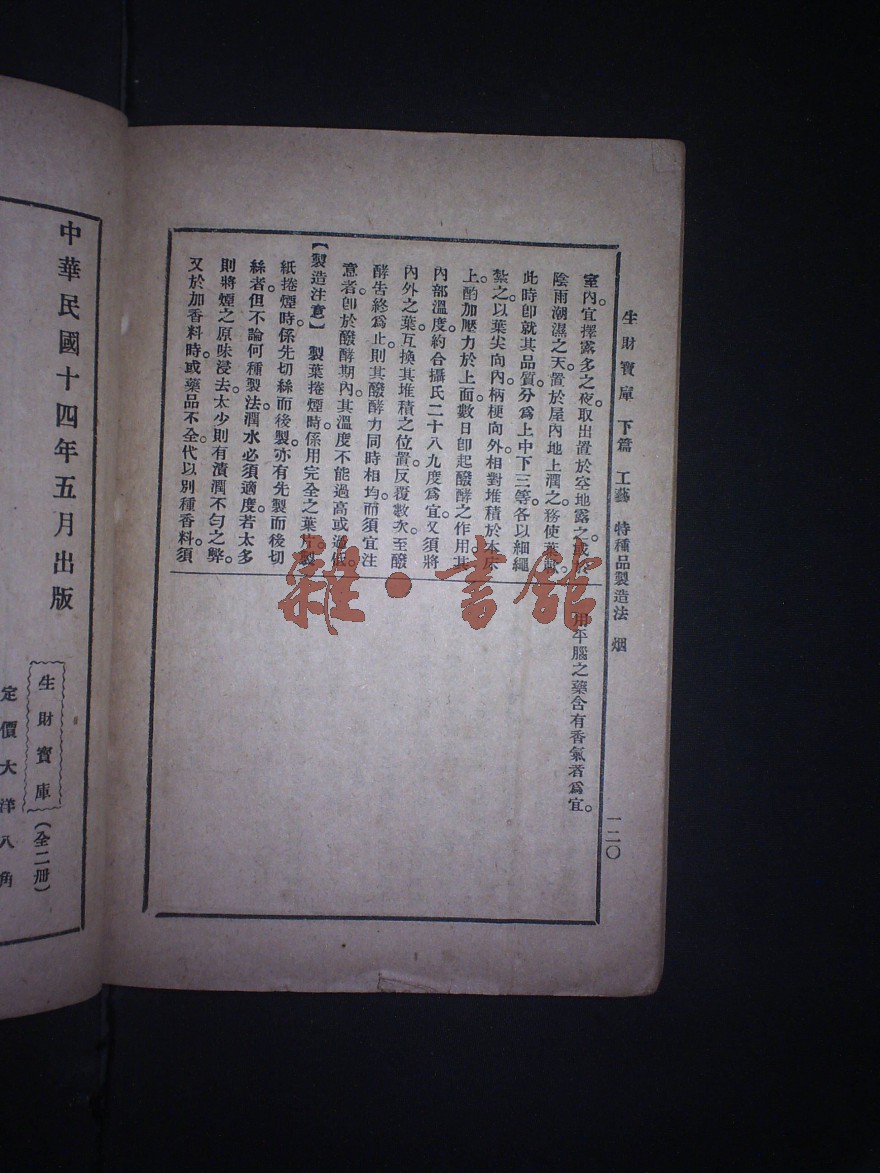 生財寶庫 下篇 工藝 特種品製造法 烟 一二〇
室內。宜擇露多之夜。取出置於空地露之。或於
陰雨潮濕之天。置於屋內地上潤之。務使葉軟。
此時卽就其品質。分爲上中下三等。各以細繩
紮之。以葉尖向內。柄梗向外。相對堆積於本床
上。酌加壓力於上面。數日卽起醱酵之作用。其
內部溫度。約合攝氏二十八九度爲宜。又須將
內外之葉。互換其堆積之位置。反覆數次。至醱
酵告終爲止。則其醱酵力同時相均。而須宜注
意者。卽於醱酵期內。其溫度不能過高或過低。
【製造注意】 製葉捲煙時。係用完全之葉片。製
紙捲煙時。係先切絲而後製。亦有先製而後切
絲者。但不論何種製法。潤水必須適度。若太多
則將煙之原味浸去。太少則有漬潤不匀之弊。
又於加香料時。或藥品不全。代以別種香料。須
用年腦之藥含有香氣者爲宜。
中華民國十四年五月出版
生財寶庫(全二冊)
定價大洋八角
雜·書館